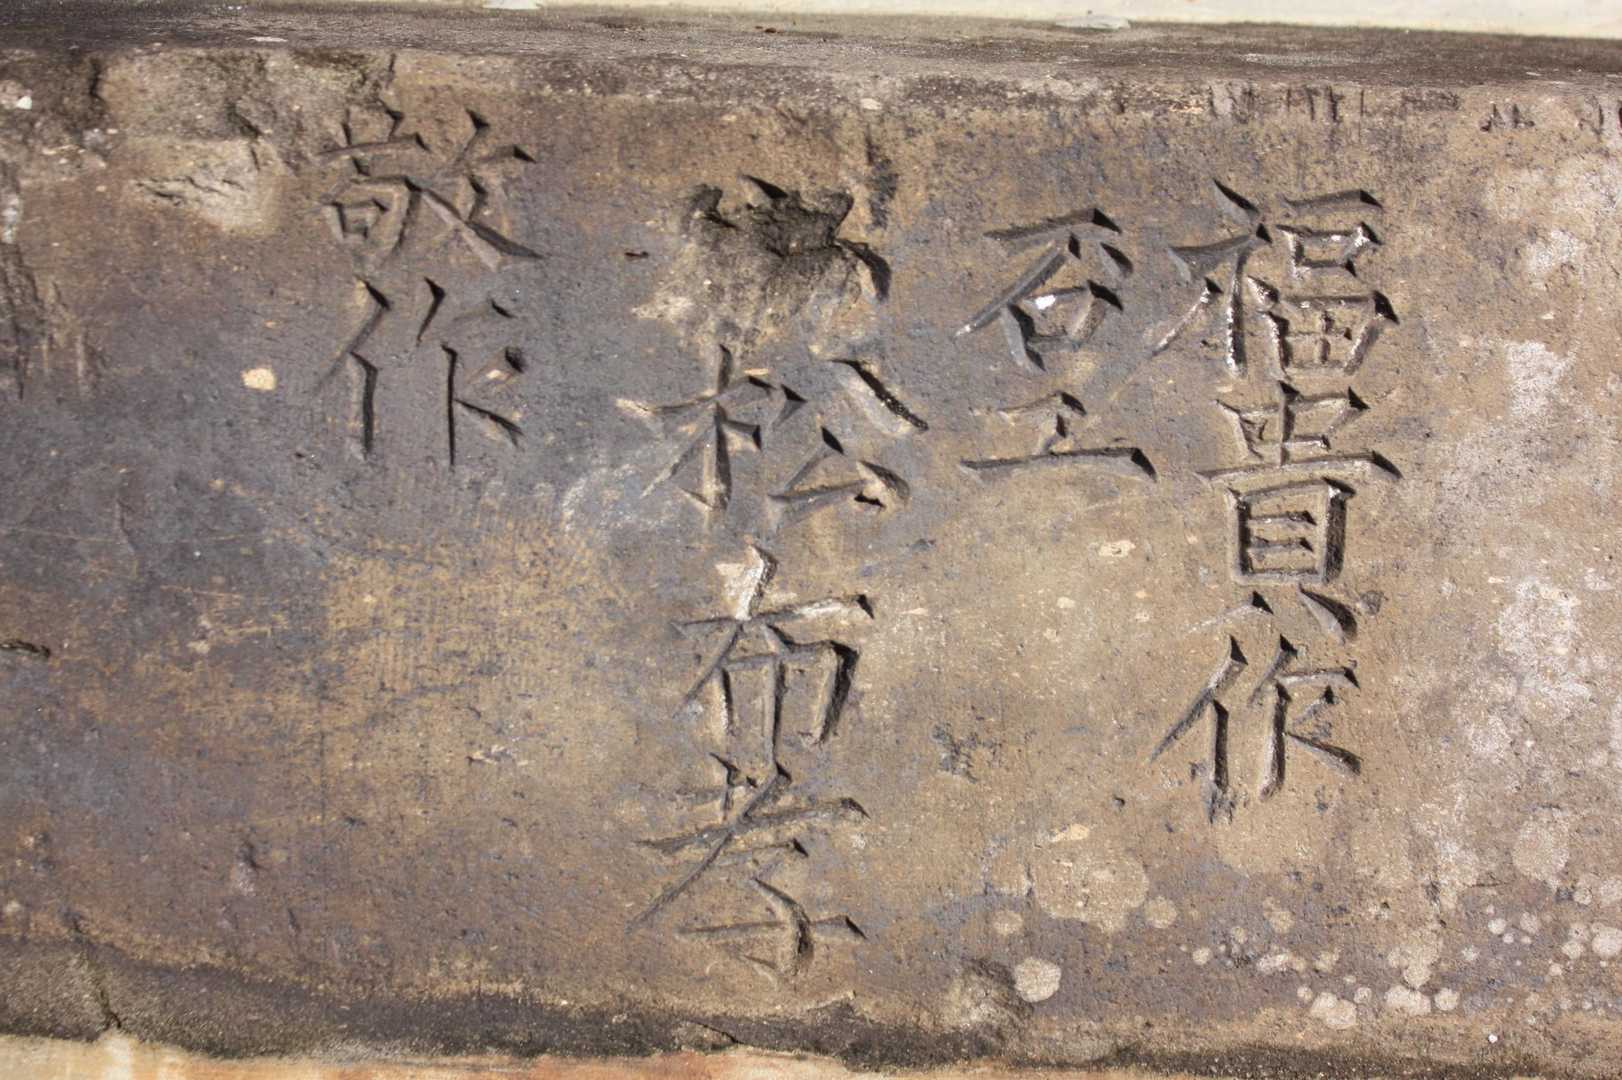 福貴作
石工
松布孝
敬作